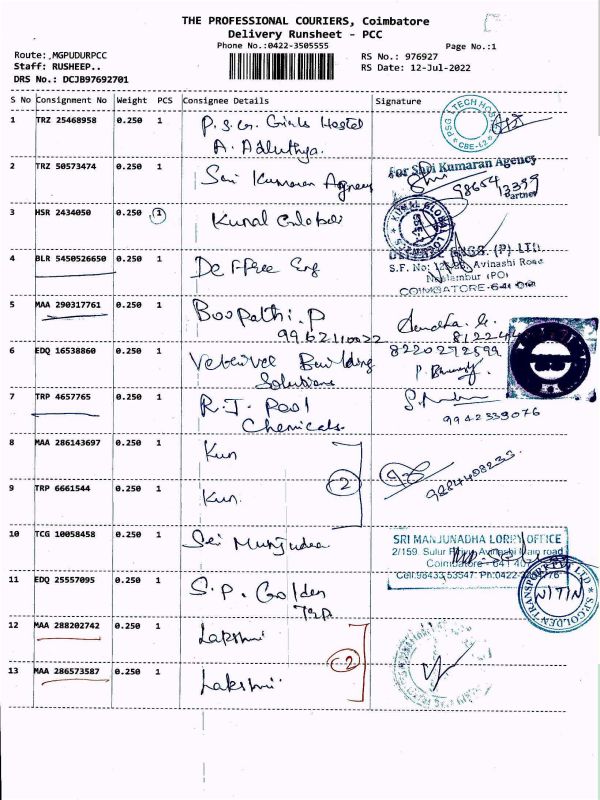 THE PROFESSIONAL COURIERS, Coimbatore
Delivery Runsheet - PCC
Phone No.:0422-3505555
Page No.:1
Route: .MGPUDURPCC
RS No.: 976927
Staff: RUSHEEP..
RS Date: 12-Jul-2022
DRS No.: DCJB97692701
S No Consignment No Weight PCS Consignee Details Signature
1 TRZ 25468958 0.250 1 P.S.G. Girls Hostel
A.
PSG I TECH HOS
CBE-62
2 TRZ 50573474 0.250 1 Sri Kumaran Agency
For Sri Kumaran Agency
98654
13399
Partner
3 HSR 2434050 0.250 1 Kunal
KUNAL
4 BLR 5450526650 0.250 1 Eng
ENGG. (P) LTD
S.F. No: Avinashi Road
(PO)
COIMBATORE-641
5 MAA 290317761 0.250 1 Boopathi.P
9962110022
6 EDQ 16538860 0.250 1 Building
Solutions
8220272599
7 TRP 4657765 0.250 1 R.J. Pool
Chemicals.
9942539076
8 MAA 286143697 0.250 1 Kun
9 TRP 6661544 0.250 1 Kun.
2
9884408233
10 TCG 10058458 0.250 1 Sri
SRI MANJUNADHA LORRY OFFICE
2/159, Sulur Avinashi Main road
Coimbatore - 641 407
Cell:98433 53547. Ph:0422-
11 EDQ 25557095 0.250 1 S.P. Golden
S.P.GOLDEN TRANSPORT PVT LTD
12 MAA 288202742 0.250 1 Lakshmi
13 MAA 286573587 0.250 1 Lakshmi
2